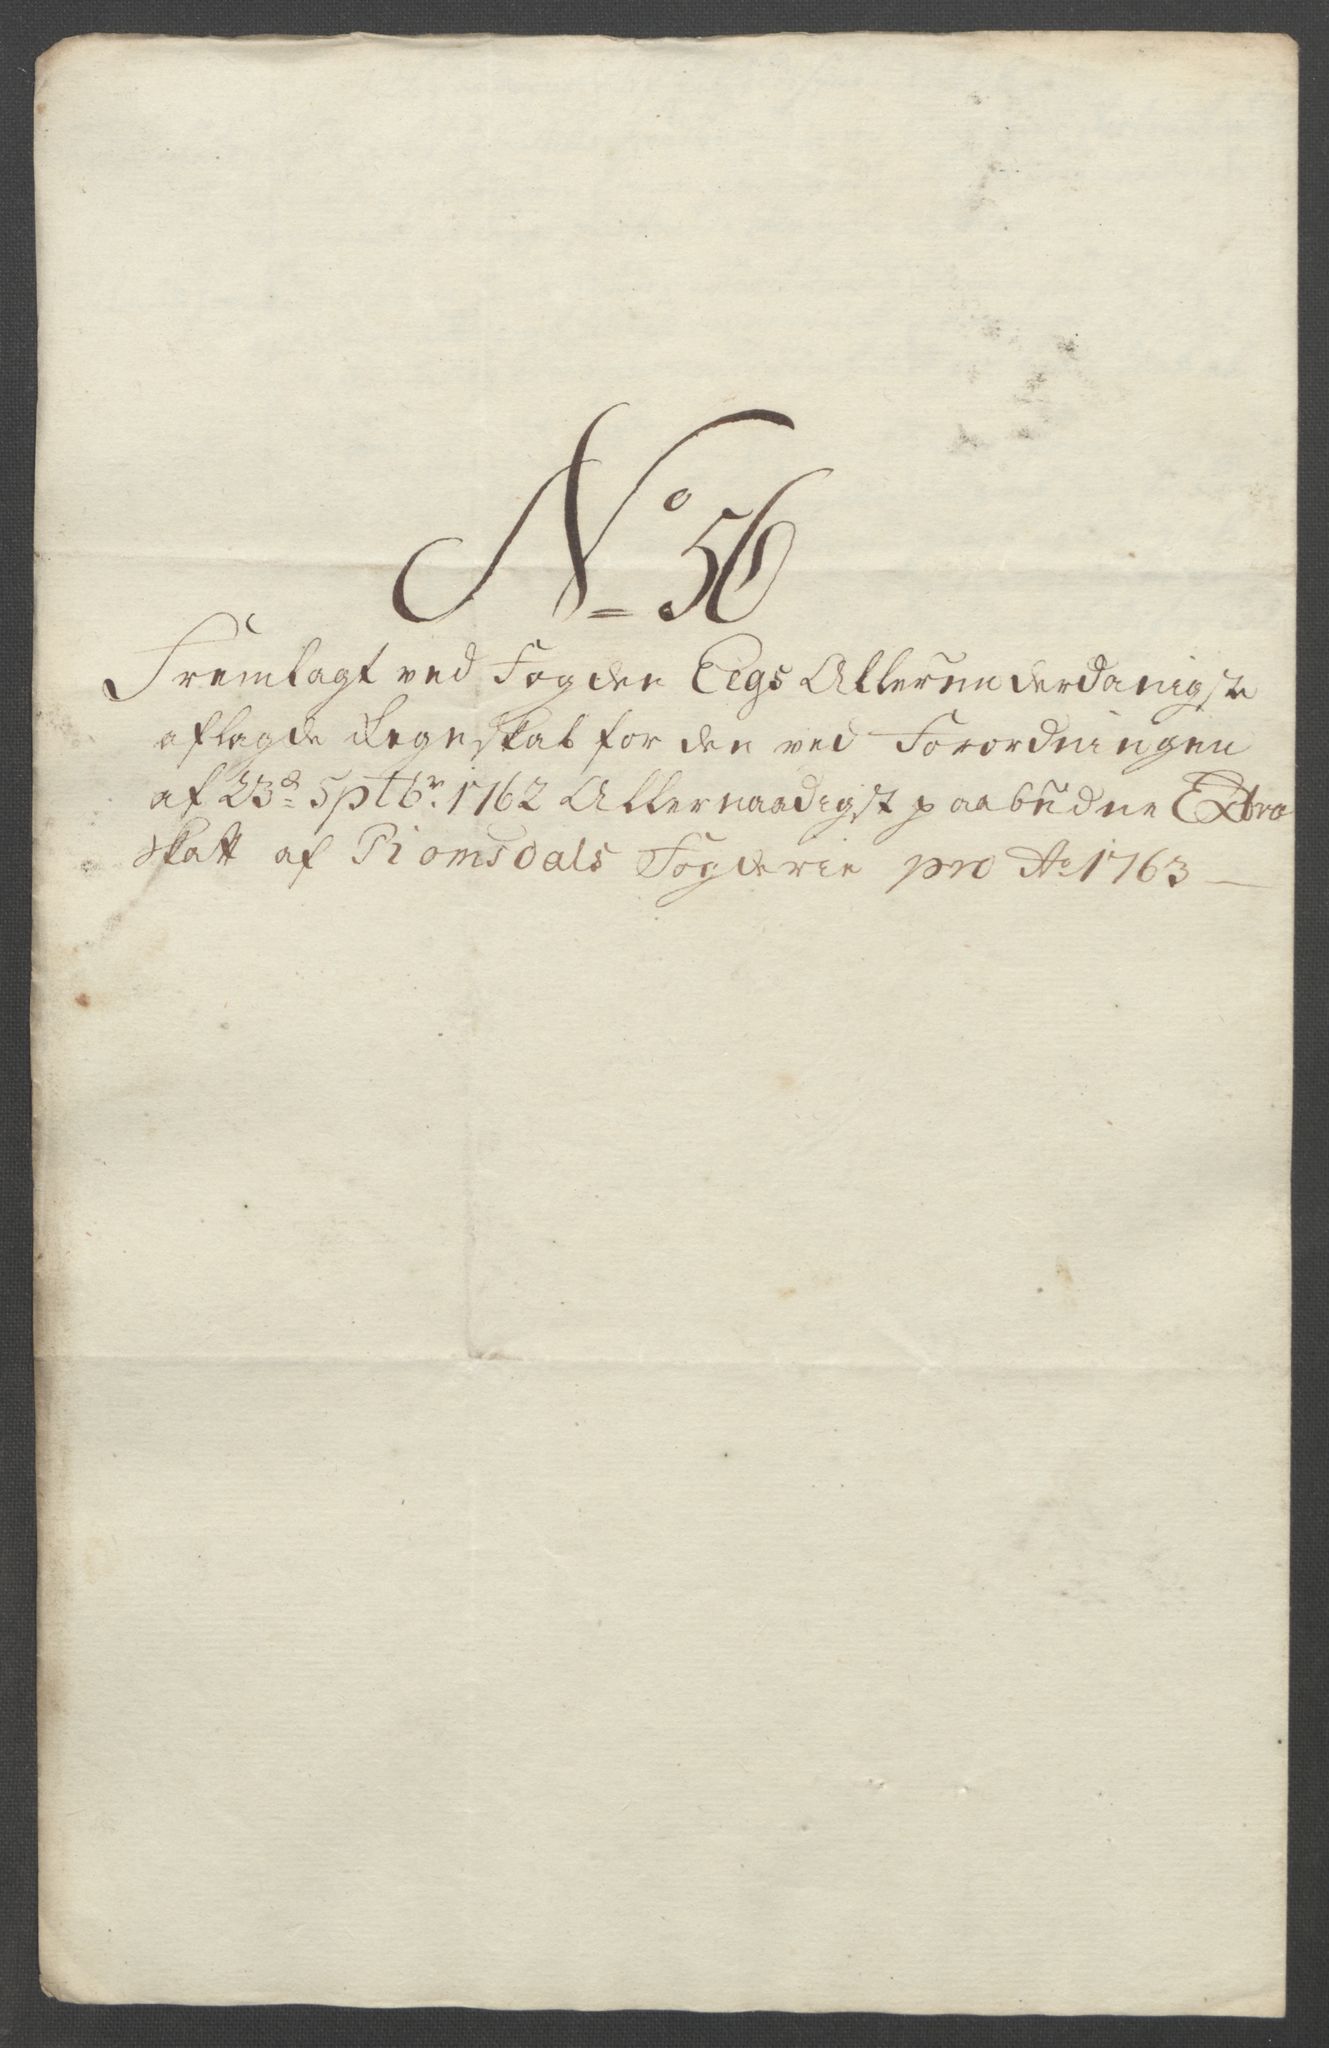 No 56
Fremlagt ved Fogden Eegs Allerunderdanigste
aflagde Regnskab for den ved Forordningen
af 23de Sptbr. 1762 Allernaadigst paabudne Extra
skatt af Romsdals Fogderie pro Ao 1763 —